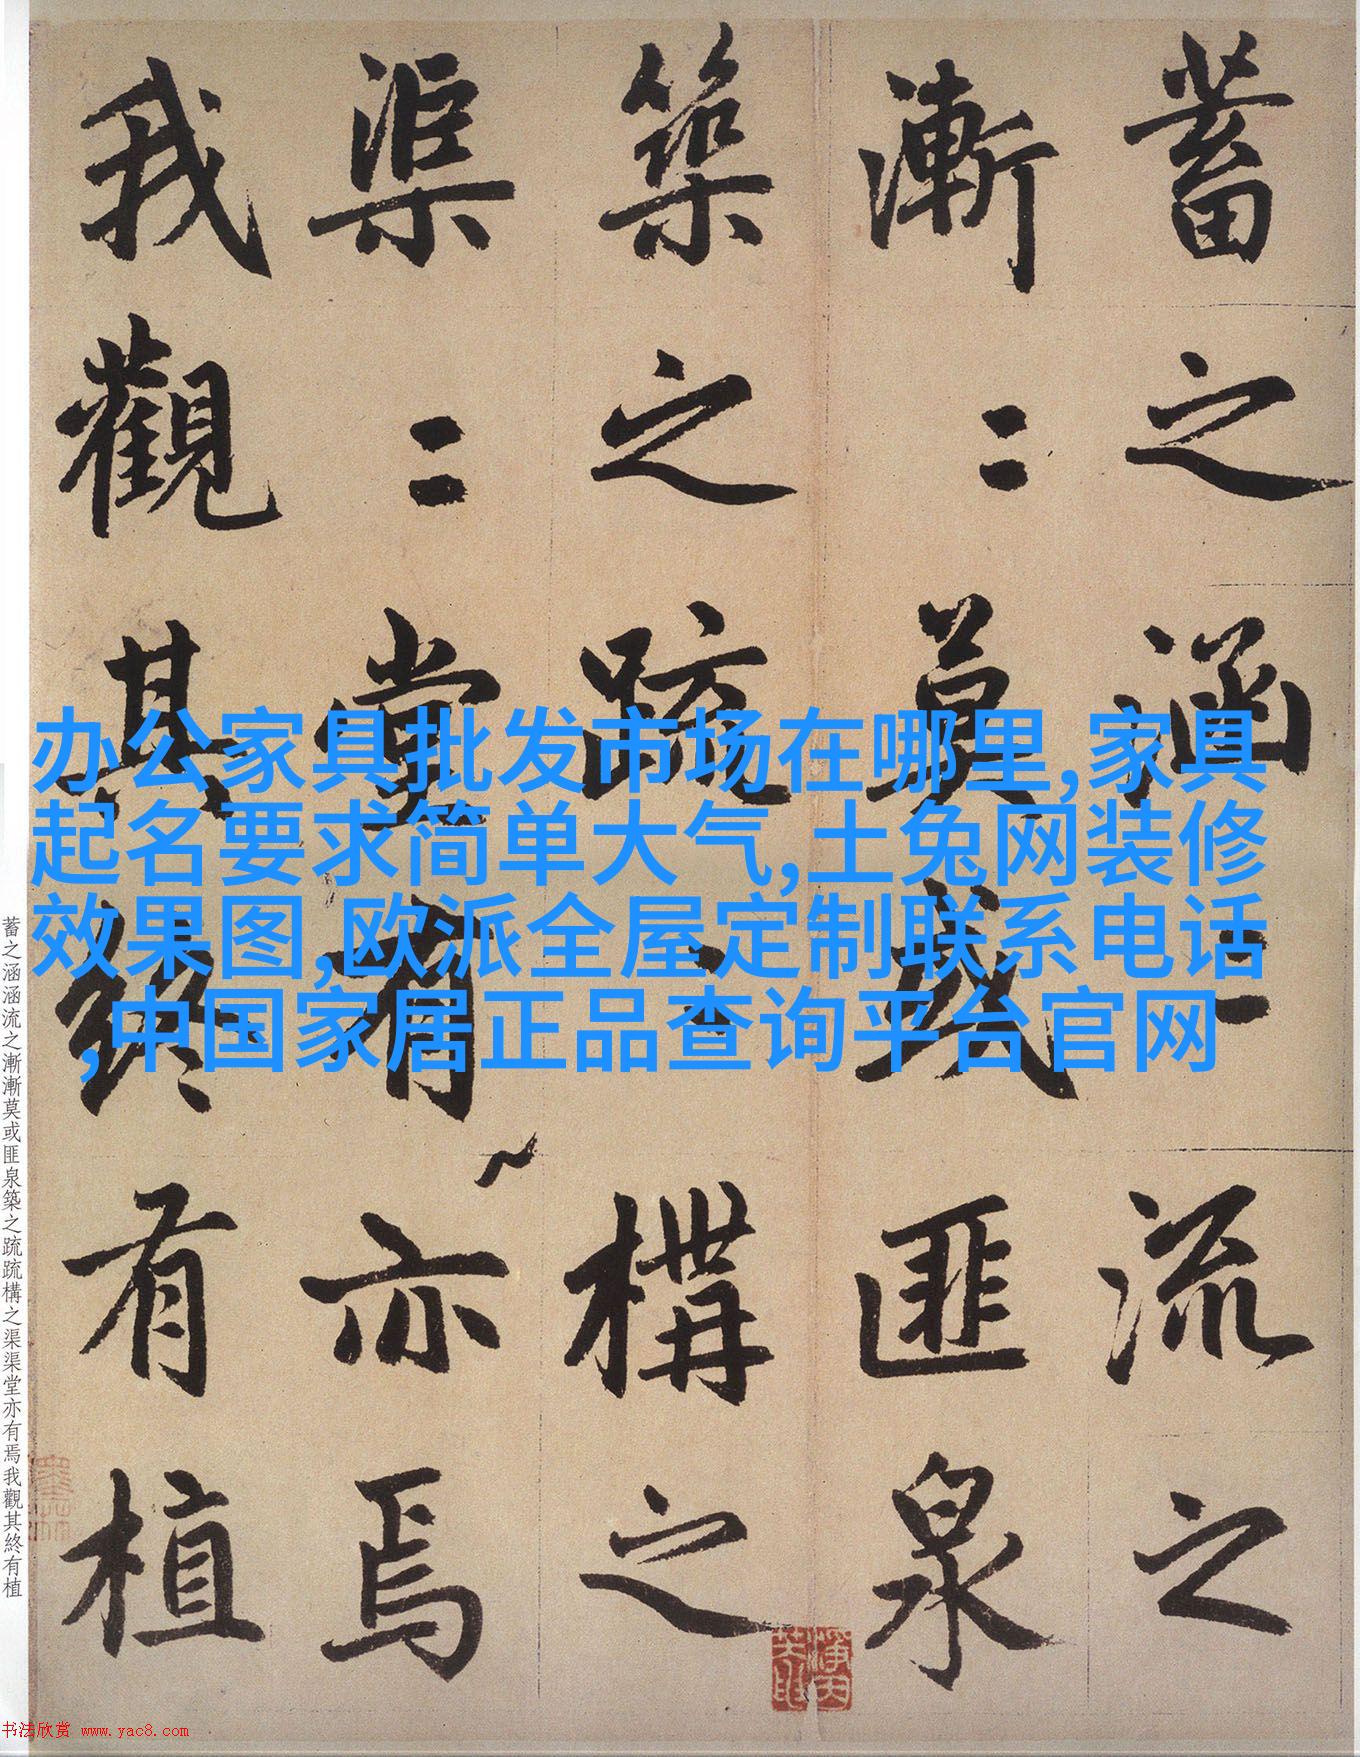 蓄之涵二流之
漸二莫或匪泉
築之疏二構之
渠二堂有亦焉
我觀其終有植
办公家具批发市场在哪里,家具
起名要求简单大气,土兔网装修
效果图,欧派全屋定制联系电话
,中国家居正品查询平台官网
蓄之涵涵流之漸漸莫或匪泉築之疏疏構之渠渠堂亦有焉我觀其終有植
书法欣赏 www.yac8.com